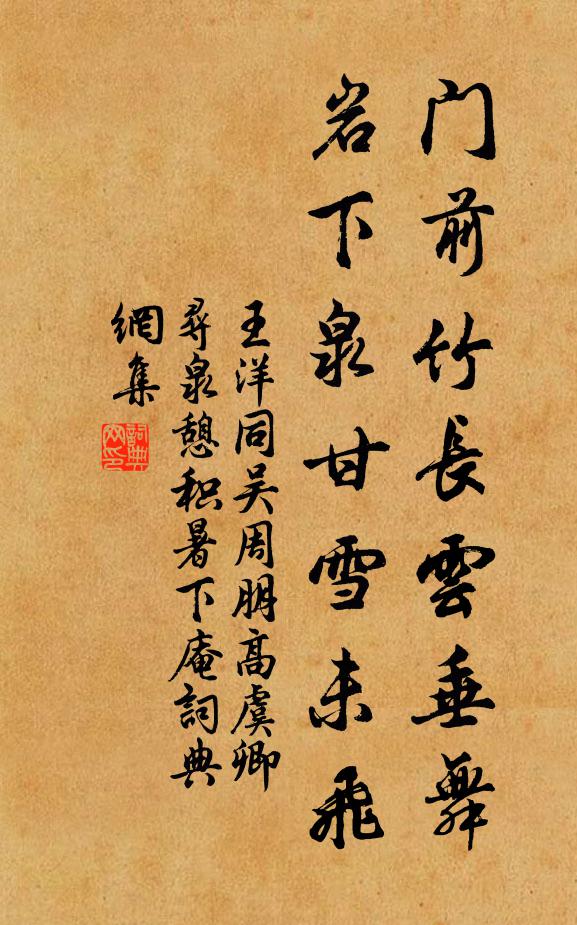 门前竹長雲垂舞
岩下泉甘雪未飛
王洋同吴周朋高虞卿
尋泉憩积暑下庵詞典
網集
詞典
网印